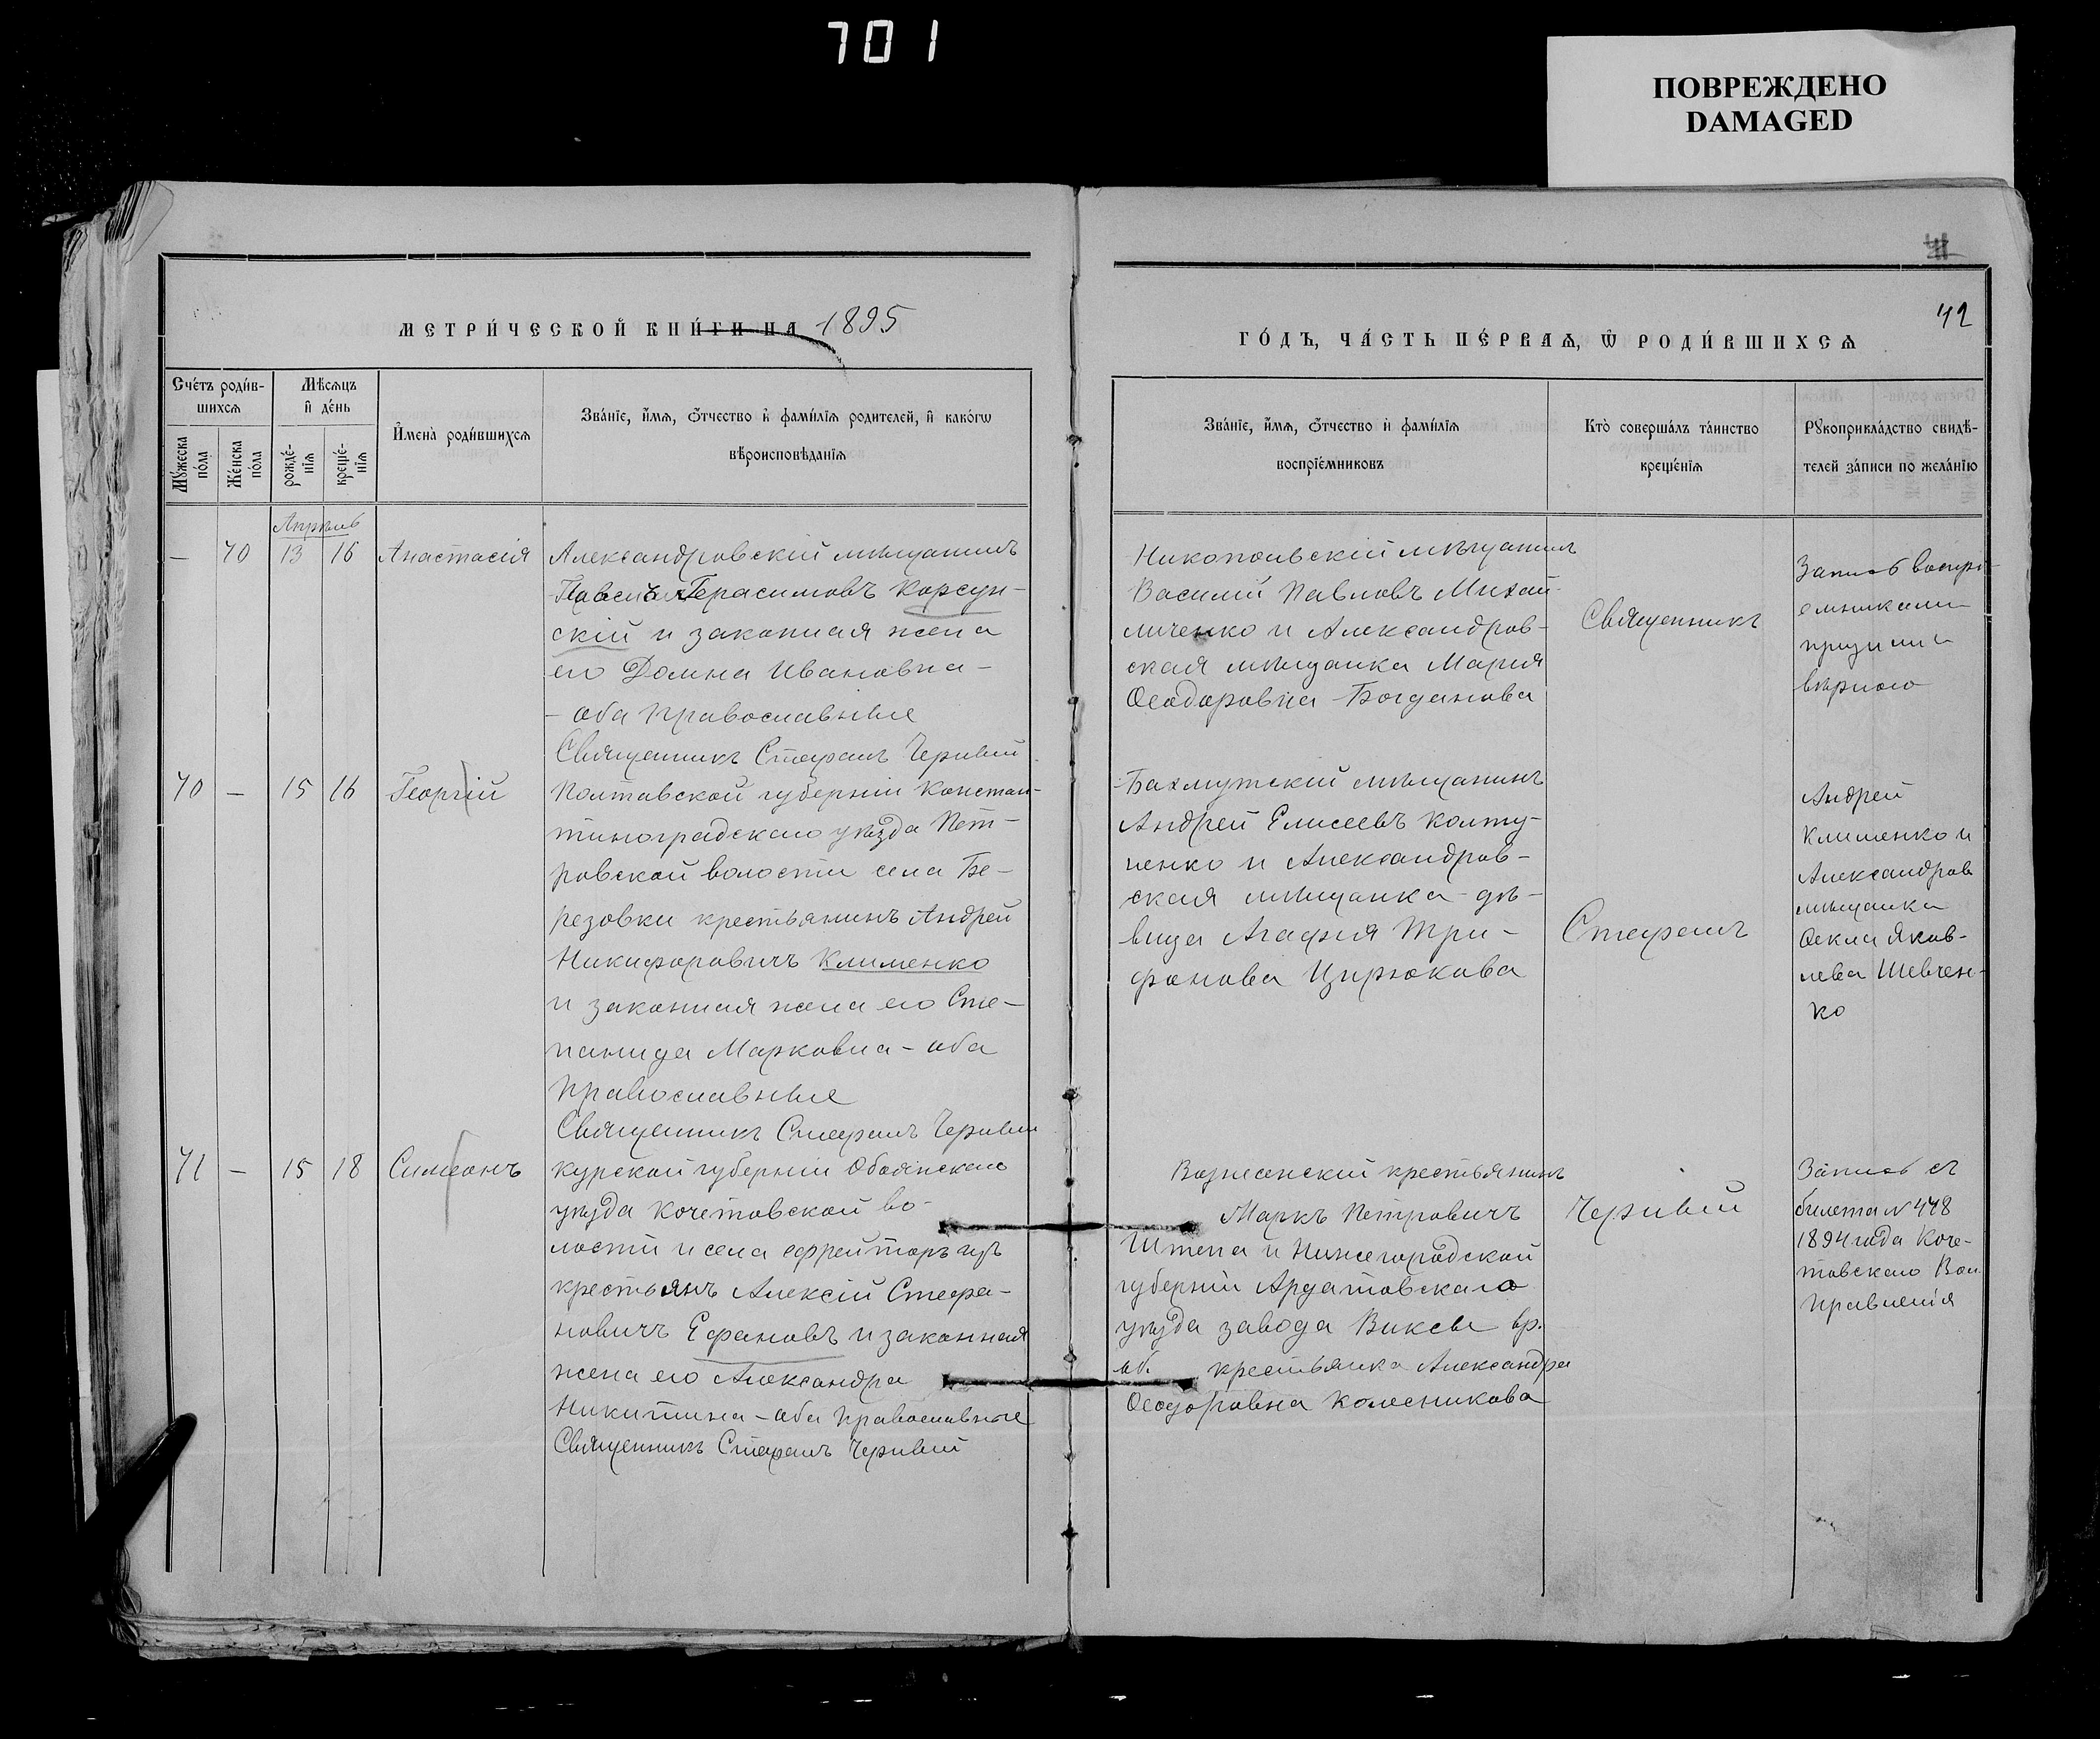 701
ПОВРЕЖДЕНО
DAMAGED
МЕТРИ́ЧЕСКОЙ КНИ́ГИ НА 1895
42
ГО́ДЪ, ЧА́СТЬ ПЕ́РВАѦ, Ѡ РОДИ́ВШИХСѦ
Сче́тъ роди́в-
шихсѧ
Мѣ́сѧцъ
и҆ де́нь
Мꙋ́жеска
по́ла
Же́нска
по́ла
рожде́-
нїѧ
креще́-
нїѧ
И҆мена̀ роди́вшихсѧ
Зва́нїе, и҆́мѧ, ѻ҆́тчество и҆ фами́лїѧ родителей, и҆ како́гѡ
вѣроисповѣ́данїѧ
Зва́нїе, и҆́мѧ, ѻ҆́тчество и҆ фами́лїѧ
воспрїе́мниковъ
Кто̀ соверша́лъ та́инство
креще́нїѧ
Рꙋкоприкла́дство свидѣ́-
телей за́писи по жела́нїю
Апрѣль
— 70 13 16 Анастасія
Александровскій мѣщанинъ
Герасимовъ Корсун-
скій и законная жена
его Домна Ивановна —
— оба православные
Священникъ Стефанъ Черивый
Никопольскій мѣщанинъ
Василій Павловъ Михай-
личенко и Александров-
ская мѣщанка Марія
Ѳеодоровна Богданова
Священникъ
Запись воспрі-
емниками
признали
вѣрною
70 — 15 16 Георгій
Полтавской губерніи Констан-
тиноградскаго уѣзда Пет-
ровской волости села Бе-
резовки крестьянинъ Андрей
Никифоровичъ Клименко
и законная жена его Сте-
панида Марковна — оба
православные
Священникъ Стефанъ Черивый
Бахмутскій мѣщанинъ
Андрей Елисеевъ Колту-
ненко и Александров-
ская мѣщанка дѣ-
вица Агафія Три-
фонова Цирюкова
Стефанъ
Андрей
Клименко и
Александров
мѣщанка
Ѳекла Яков-
лева Шевчен-
ко
71 — 15 18 Симеонъ
Курской губерніи Обоянскаго
уѣзда Кочетовской во-
лости и села ефрейторъ изъ
крестьянъ Алексій Стефа-
новичъ Ефановъ и законная
жена его Александра
Никитина — оба православные
Священникъ Стефанъ Черивый
Вознесенскій крестьянинъ
Маркъ Петровичъ
Штепа и Нижегородской
губерніи Ардатовскаго
уѣзда завода Виксы вр.
об. крестьянка Александра
Ѳеодоровна Колесникова
Черивый
Запись съ
билета № 448
1894 года Коче-
товскаго Вол.
Правленія